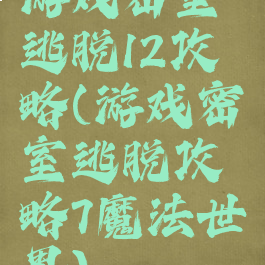 游戏密室
逃脱12攻
略(游戏密
室逃脱攻
略7魔法世
界)